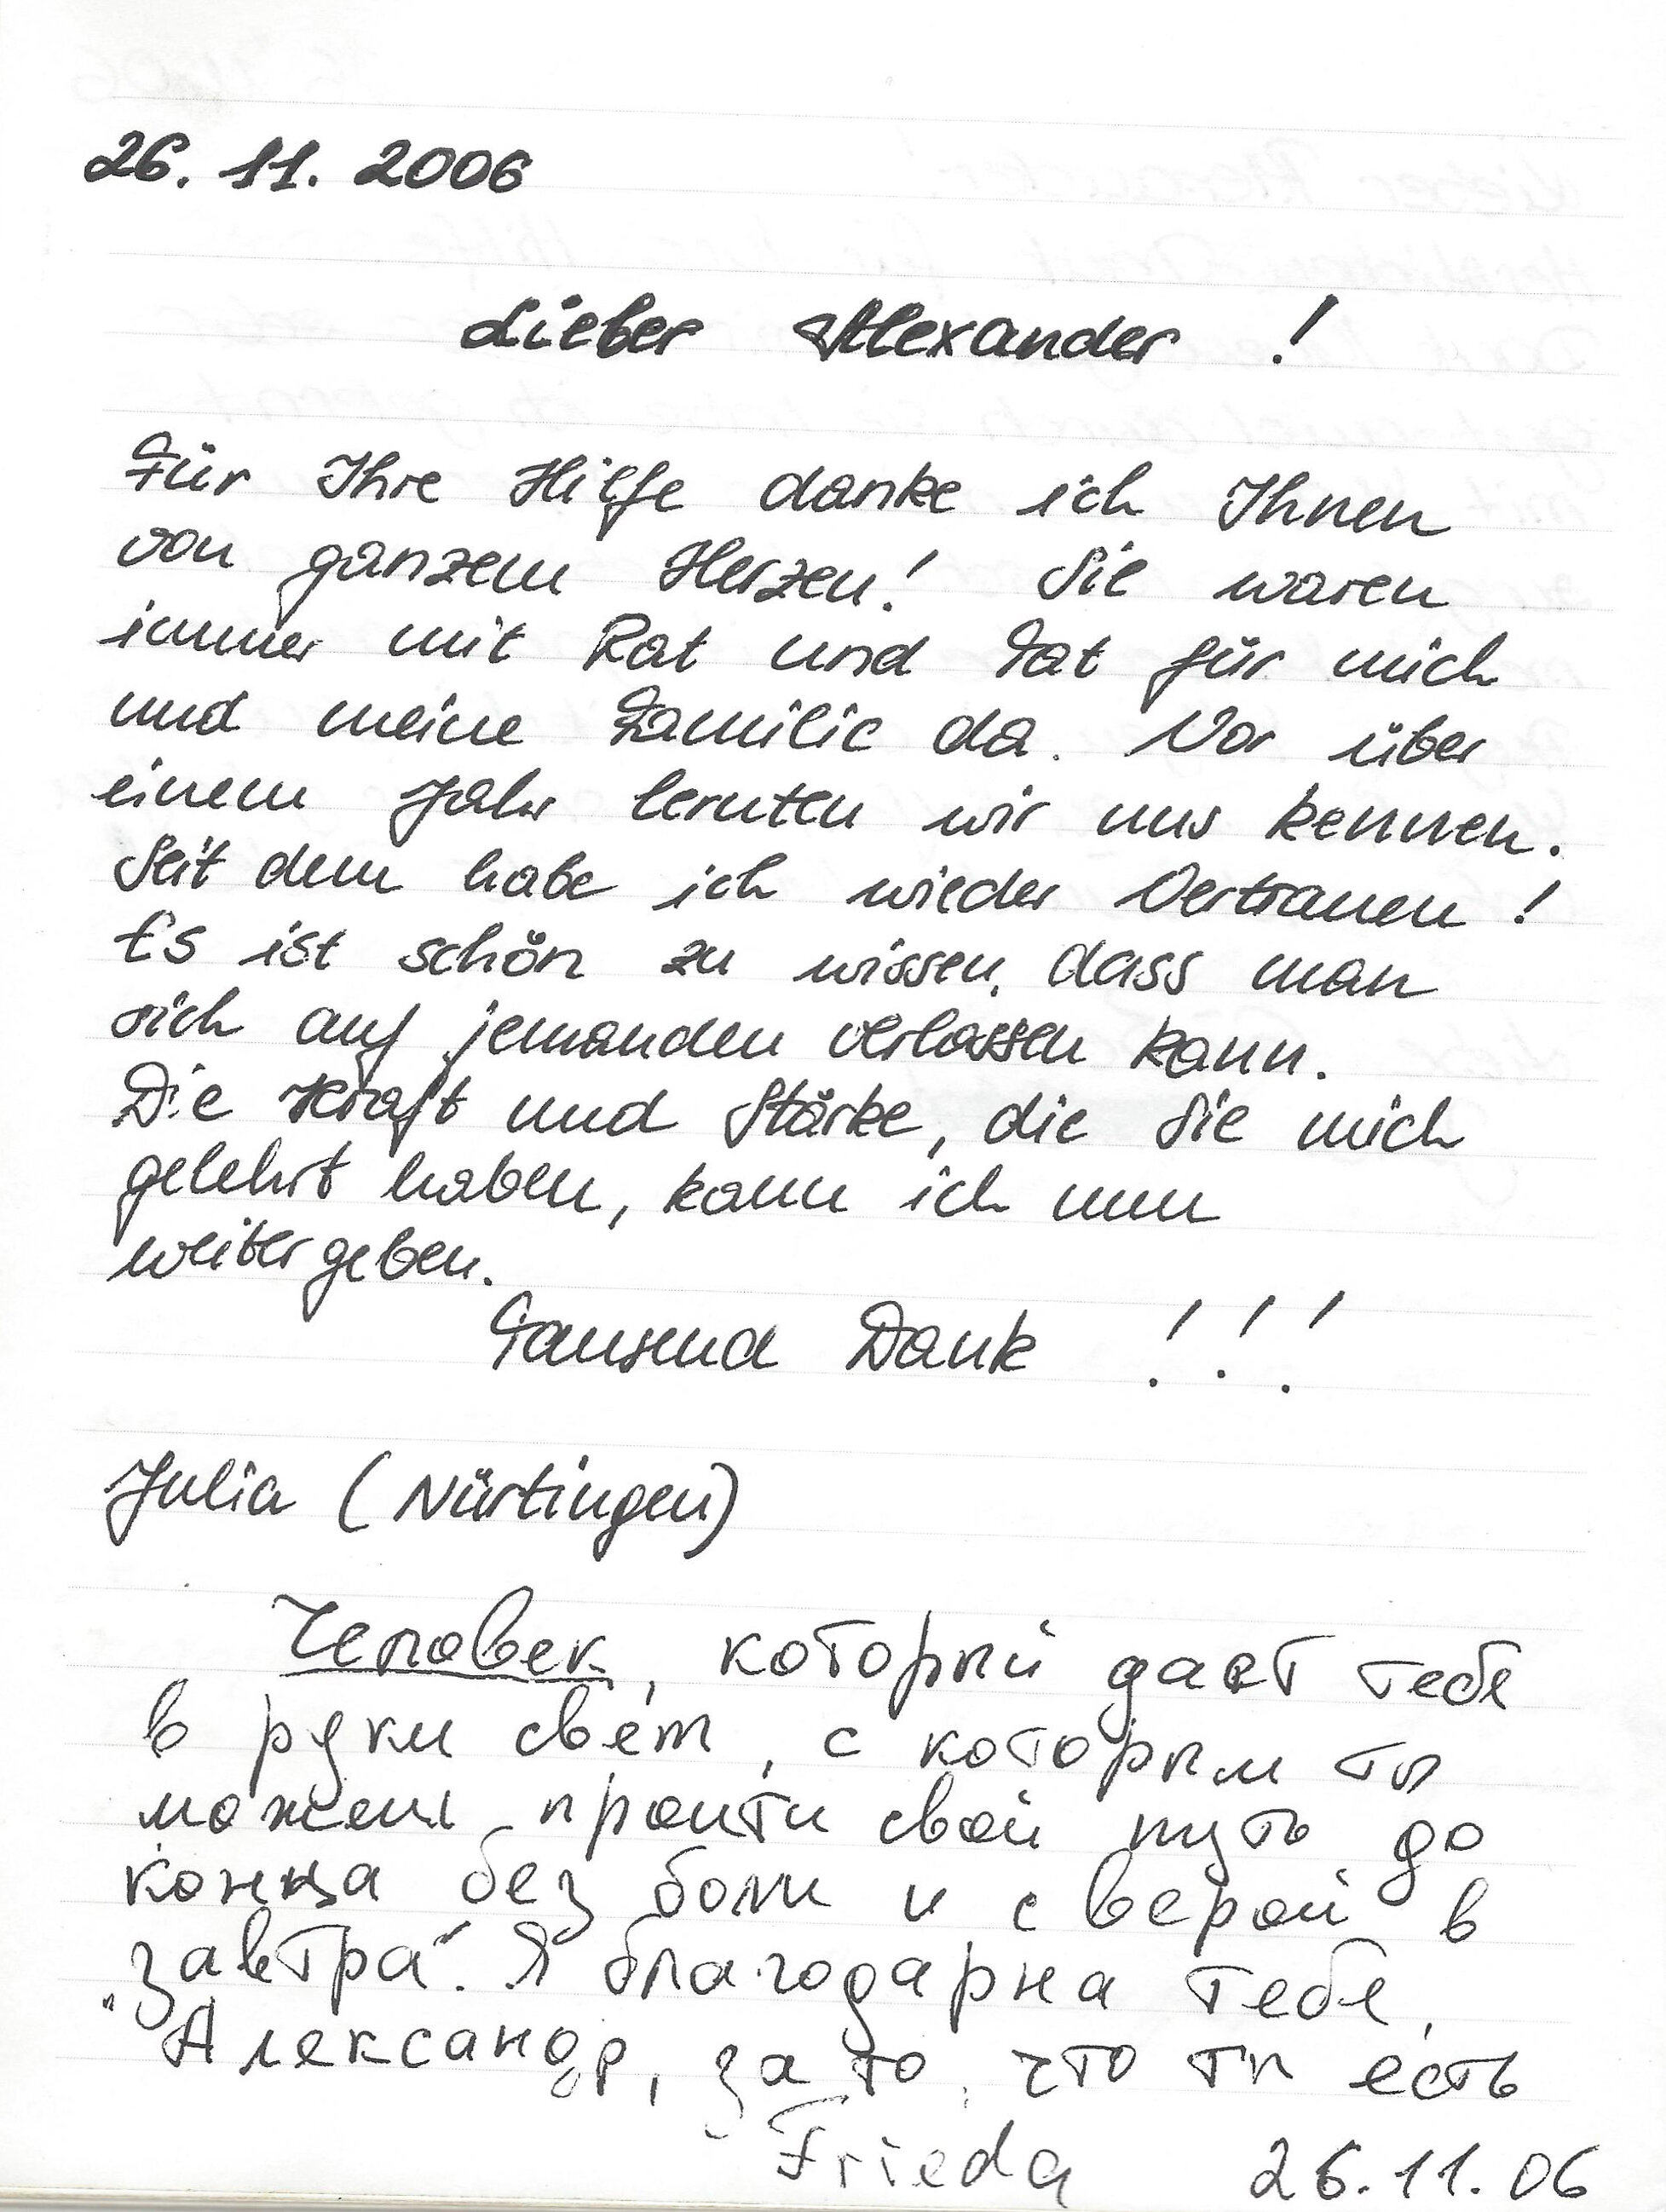 26. 11. 2006
Lieber Alexander !
Für Ihre Hilfe danke ich Ihnen
von ganzem Herzen! Sie waren
immer mit Rat und Tat für mich
und meine Familie da. Vor über
einem Jahr lernten wir uns kennen.
Seit dem habe ich wieder Vertrauen !
Es ist schön zu wissen, dass man
sich auf jemanden verlassen kann.
Die Kraft und Stärke, die Sie mich
gelehrt haben, kann ich nun
weitergeben.
Tausend Dank !!!
Julia (Nürtingen)
Человек, который дает тебе
в руки свет, с которым ты
можешь пройти свой путь до
конца без боли и с верой в
"завтра". Я благодарна тебе,
Александр, за то, что ты есть
Frieda 26.11.06